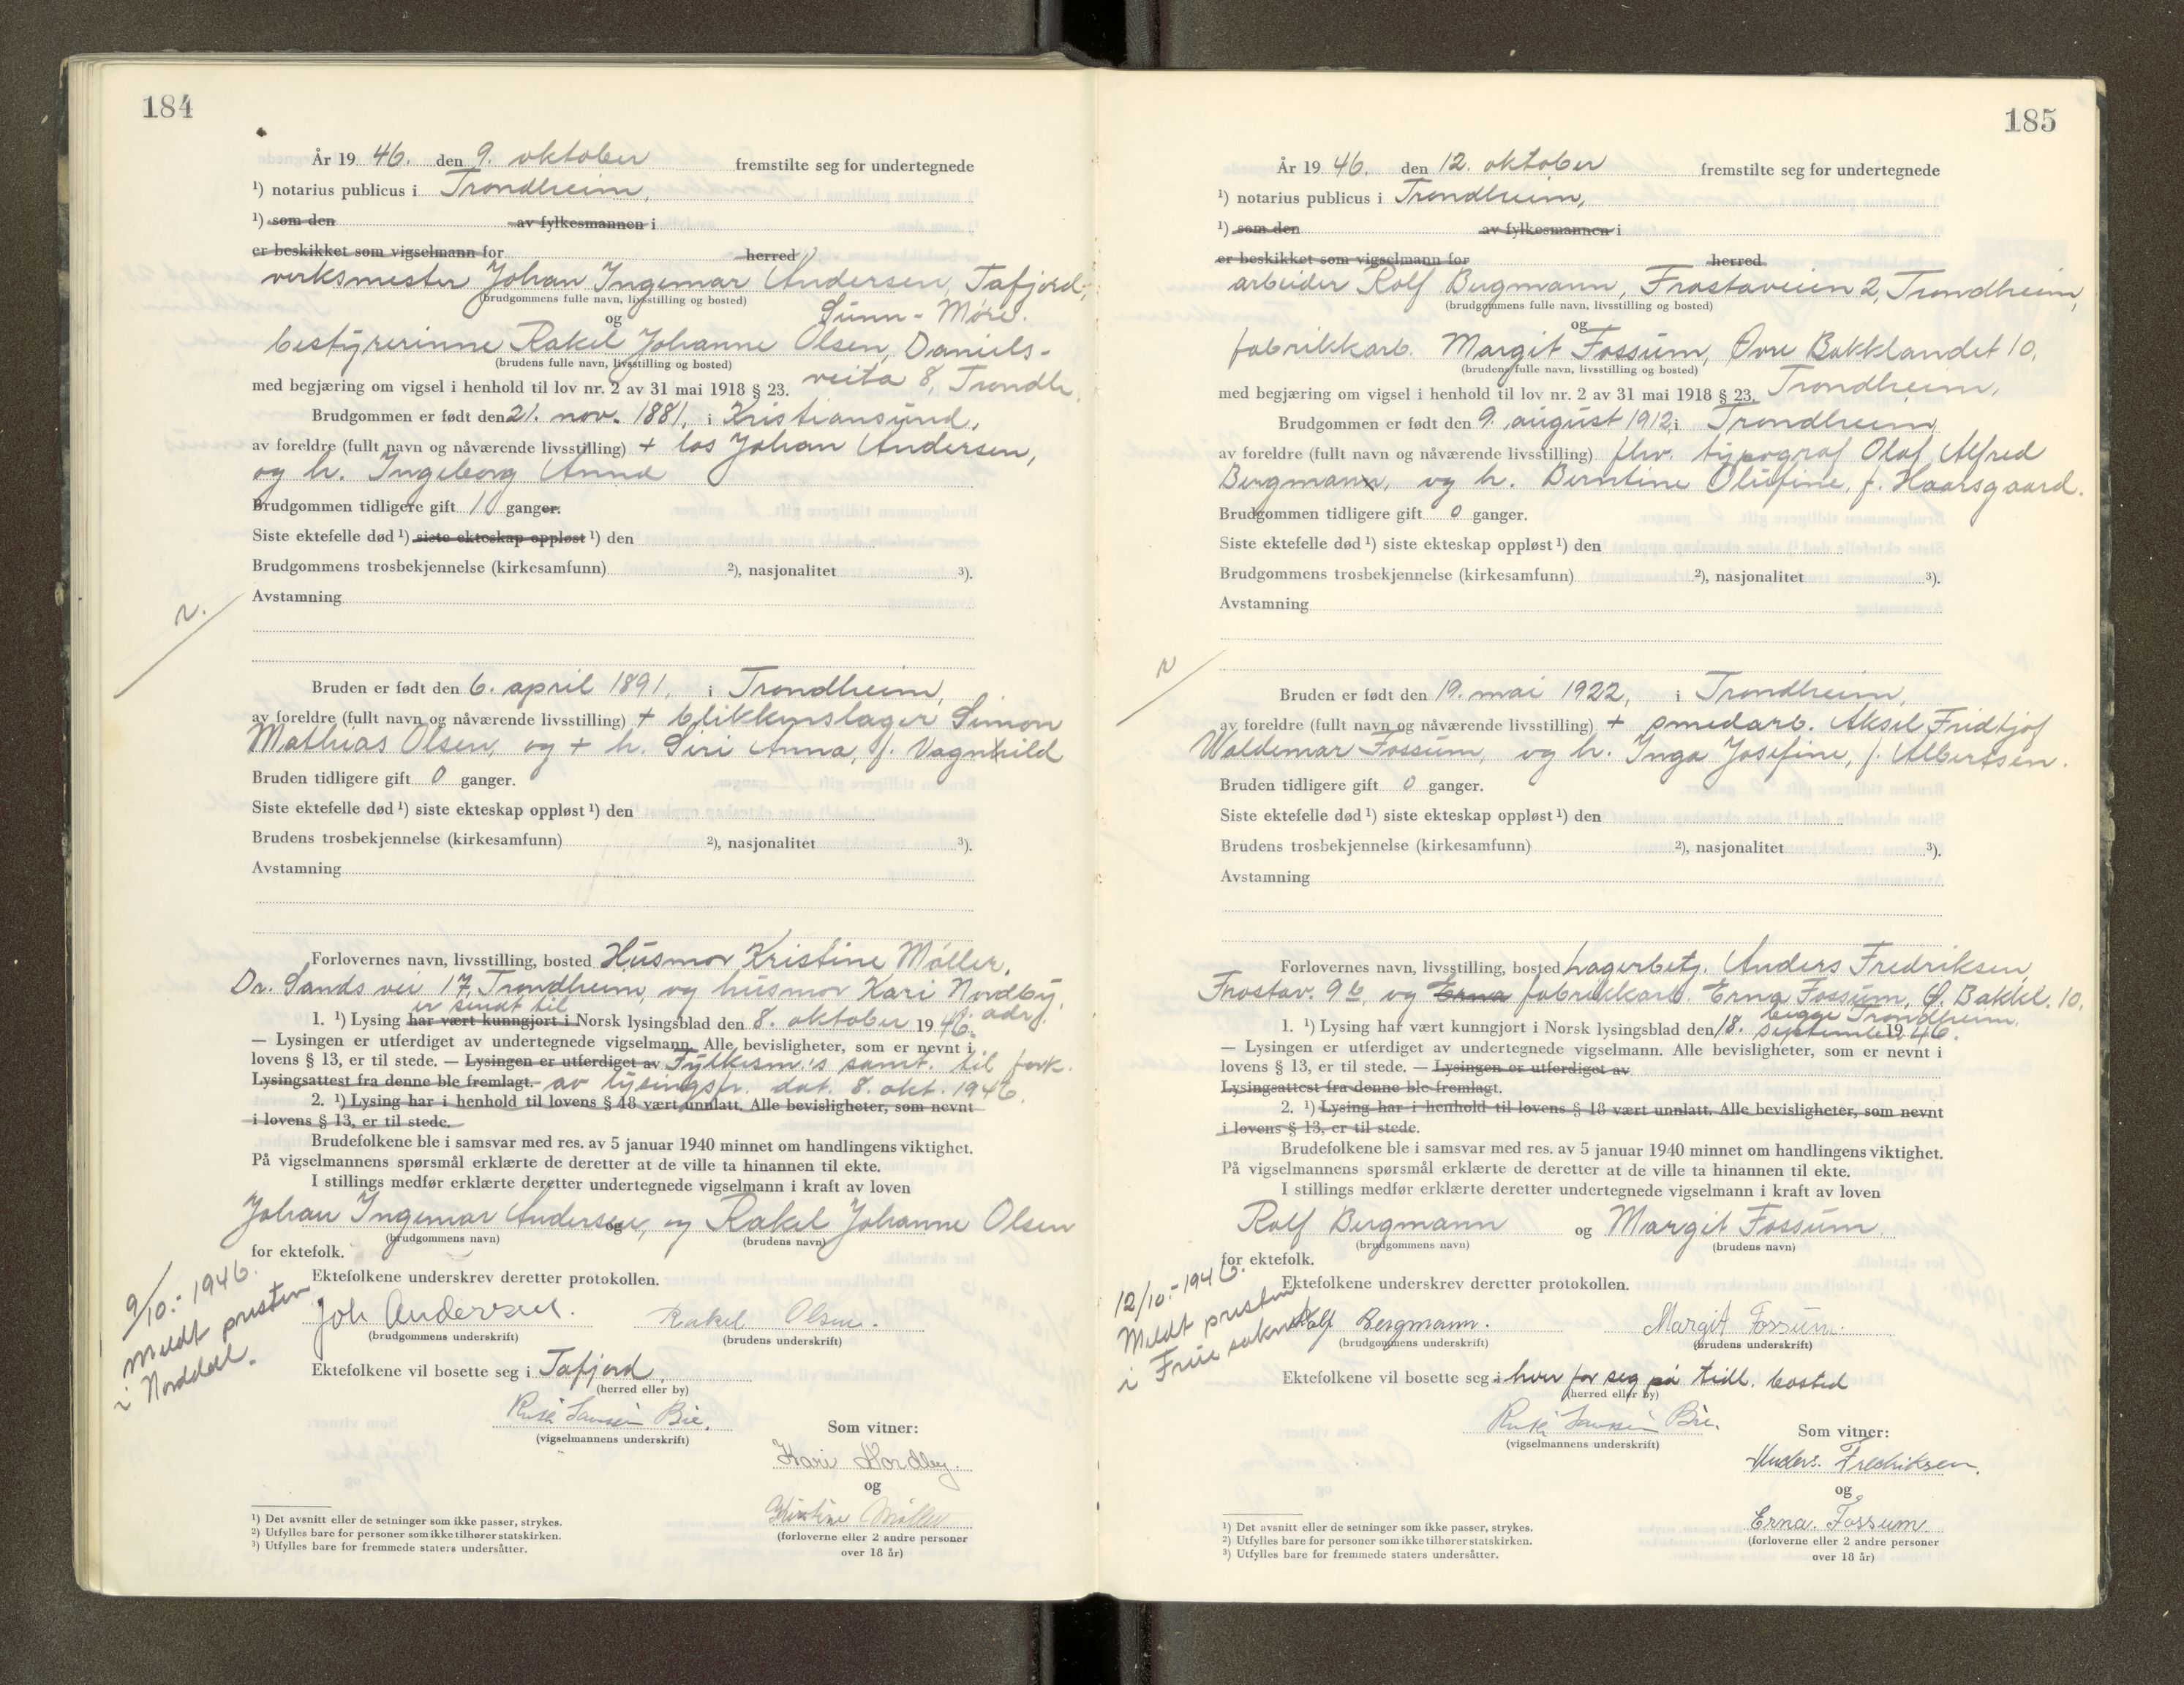 184
År 19 46. den 9. oktober fremstilte seg for undertegnede
¹) notarius publicus i Trondheim,
¹) som den av fylkesmannen i
er beskikket som vigselmann for herred
verksmester Johan Ingemar Andersen, Tafjord,
(brudgommens fulle navn, livsstilling og bosted)
og Sunn-Møre.
bestyrerinne Rakel Johanne Olsen, Daniels-
(brudens fulle navn, livsstilling og bosted)
med begjæring om vigsel i henhold til lov nr. 2 av 31 mai 1918 § 23. veita 8, Trondh.
Brudgommen er født den 21. nov. 1881, i Kristiansund,
av foreldre (fullt navn og nåværende livsstilling) + los Johan Andersen,
og h. Ingeborg Anna
Brudgommen tidligere gift 10 ganger.
Siste ektefelle død ¹) siste ekteskap oppløst ¹) den
Brudgommens trosbekjennelse (kirkesamfunn) ²), nasjonalitet ³).
Avstamning
Bruden er født den 6. april 1891, i Trondheim,
av foreldre (fullt navn og nåværende livsstilling) + blikkenslager Simon
Mathias Olsen, og + h. Siri Anna, f. Vagnild
Bruden tidligere gift 0 ganger.
Siste ektefelle død ¹) siste ekteskap oppløst ¹) den
Brudens trosbekjennelse (kirkesamfunn) ²), nasjonalitet ³).
Avstamning
Forlovernes navn, livsstilling, bosted Husmor Kristine Møller,
Dr. Sands vei 17, Trondheim, og husmor Kari Nordby,
er sendt til
1. ¹) Lysing har vært kunngjort i Norsk lysingsblad den 8. oktober 19 46.
— Lysingen er utferdiget av undertegnede vigselmann. Alle bevisligheter, som er nevnt i
lovens § 13, er til stede. — Lysingen er utferdiget av Fylkesm.'s samt. til fork.
Lysingsattest fra denne ble fremlagt. av lysingsfr. dat. 8. okt. 1946.
2. ¹) Lysing har i henhold til lovens § 18 vært unnlatt. Alle bevisligheter, som nevnt
i lovens § 13, er til stede.
Brudefolkene ble i samsvar med res. av 5 januar 1940 minnet om handlingens viktighet.
På vigselmannens spørsmål erklærte de deretter at de ville ta hinannen til ekte.
I stillings medfør erklærte deretter undertegnede vigselmann i kraft av loven
Johan Ingemar Andersen, og Rakel Johanne Olsen
(brudgommens navn) og (brudens navn)
for ektefolk.
Ektefolkene underskrev deretter protokollen.
9/10.-1946.
Meldt presten
i Norddal.
Joh Andersen. Rakel Olsen.
(brudgommens underskrift) (brudens underskrift)
Ektefolkene vil bosette seg i Tafjord,
(herred eller by)
Bie.
(vigselmannens underskrift)
Som vitner:
Kari Nordby.
og
Kristine Møller
(forloverne eller 2 andre personer
over 18 år)
¹) Det avsnitt eller de setninger som ikke passer, strykes.
²) Utfylles bare for personer som ikke tilhører statskirken.
³) Utfylles bare for fremmede staters undersåtter.
185
År 19 46. den 12. oktober fremstilte seg for undertegnede
¹) notarius publicus i Trondheim,
¹) som den av fylkesmannen i
er beskikket som vigselmann for herred
arbeider Rolf Bergmann, Frostaveien 2, Trondheim,
(brudgommens fulle navn, livsstilling og bosted)
og
fabrikkarb. Margit Fossum, Øvre Bakklandet 10,
(brudens fulle navn, livsstilling og bosted)
med begjæring om vigsel i henhold til lov nr. 2 av 31 mai 1918 § 23. Trondheim,
Brudgommen er født den 9. august 1912, i Trondheim,
av foreldre (fullt navn og nåværende livsstilling) fhv. typograf Olaf Alfred
Bergmann, og h. Berntine Olufine, f. Haarsgaard.
Brudgommen tidligere gift 0 ganger.
Siste ektefelle død ¹) siste ekteskap oppløst ¹) den
Brudgommens trosbekjennelse (kirkesamfunn) ²), nasjonalitet ³).
Avstamning
Bruden er født den 19. mai 1922, i Trondheim,
av foreldre (fullt navn og nåværende livsstilling) + smedarb. Aksel Fridtjof
Waldemar Fossum, og h. Inga Josefine, f. Albertsen.
Bruden tidligere gift 0 ganger.
Siste ektefelle død ¹) siste ekteskap oppløst ¹) den
Brudens trosbekjennelse (kirkesamfunn) ²), nasjonalitet ³).
Avstamning
Forlovernes navn, livsstilling, bosted lagerbetj. Anders Fredriksen,
Frostav. 9 b, og Erna fabrikkarb. Erna Fossum, Ø. Bakkl. 10,
begge Trondheim.
1. ¹) Lysing har vært kunngjort i Norsk lysingsblad den 18. september 19 46.
— Lysingen er utferdiget av undertegnede vigselmann. Alle bevisligheter, som er nevnt i
lovens § 13, er til stede. — Lysingen er utferdiget av
Lysingsattest fra denne ble fremlagt.
2. ¹) Lysing har i henhold til lovens § 18 vært unnlatt. Alle bevisligheter, som nevnt
i lovens § 13, er til stede.
Brudefolkene ble i samsvar med res. av 5 januar 1940 minnet om handlingens viktighet.
På vigselmannens spørsmål erklærte de deretter at de ville ta hinannen til ekte.
I stillings medfør erklærte deretter undertegnede vigselmann i kraft av loven
Rolf Bergmann og Margit Fossum.
(brudgommens navn) (brudens navn)
for ektefolk.
Ektefolkene underskrev deretter protokollen.
12/10.-1946.
Meldt presten
i Frue sokn
Rolf Bergmann. Margit Fossum.
(brudgommens underskrift) (brudens underskrift)
Ektefolkene vil bosette seg i hver for seg på tidl. bosted
(herred eller by)
Bie.
(vigselmannens underskrift)
Som vitner:
Anders. Fredriksen.
og
Erna. Fossum.
(forloverne eller 2 andre personer
over 18 år)
¹) Det avsnitt eller de setninger som ikke passer, strykes.
²) Utfylles bare for personer som ikke tilhører statskirken.
³) Utfylles bare for fremmede staters undersåtter.